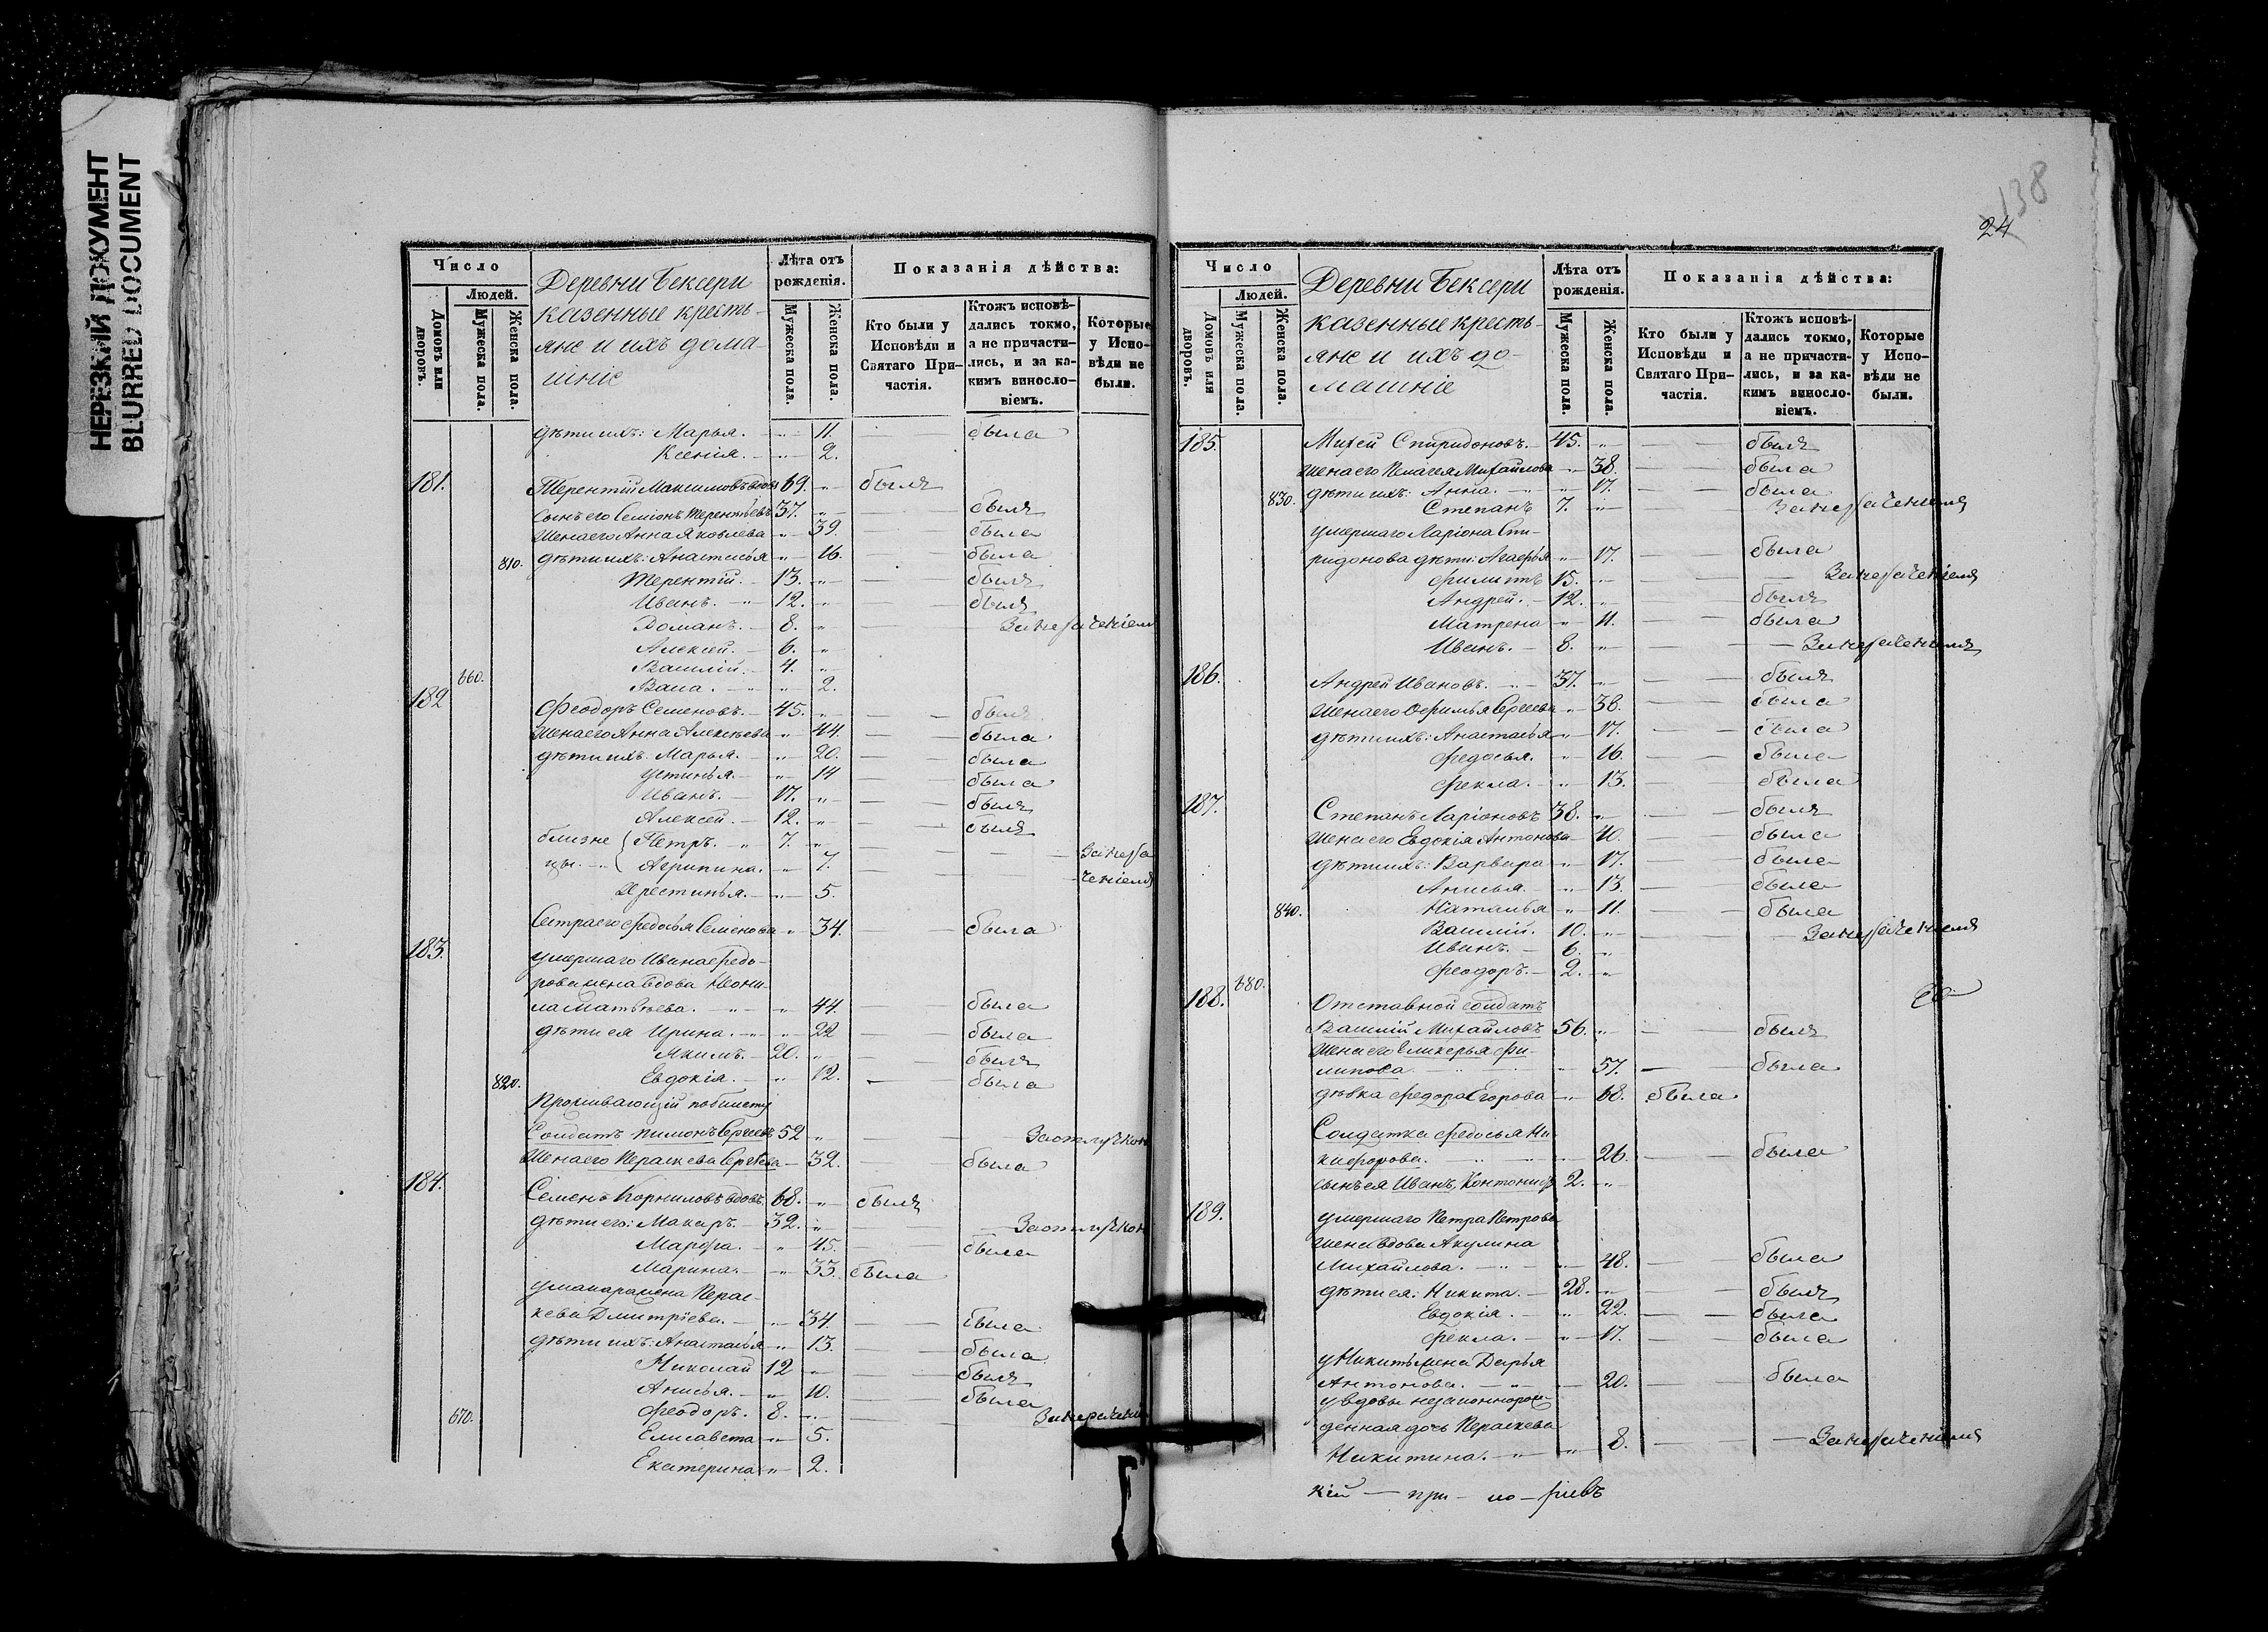 НЕРЕЗКИЙ ДОКУМЕНТ
BLURRED DOCUMENT
Число
Людей.
Домовъ или дворовъ.
Мужеска пола.
Женска пола.
Деревни Бексери
казенные кресть-
яне и ихъ дома-
шніе
Лѣта отъ рожденія.
Мужеска пола.
Женска пола.
Показанія дѣйства:
Кто были у Исповѣди и Святаго Причастія.
Ктожъ исповѣдались токмо, а не причастились, и за какимъ винословіемъ.
Которые у Исповѣди не были.
дѣти ихъ: Марья. — „ — 11. была
Ксенія. — „ — 2.
181. Терентій Максимовъ вдовъ 69. „ былъ
Сынъ его Семіонъ Терентьевъ 37. „ былъ
Жена его Анна Яковлева „ 39. была
810. дѣти ихъ: Анастасья „ 16. была
Терентій. 13. „ былъ
Иванъ. 12. „ былъ
Романъ. 8. „ За нераченіем
Алексей. 6. „
Василій. 4. „
660. Васа. „ 2.
182 Феодоръ Семеновъ. 45. „ былъ
Жена его Анна Алексѣева „ 44. была
дѣти ихъ: Марья. „ 20. была
Устинья. „ 14 была
Иванъ. 17. „ былъ
Алексей. 12. „ былъ
близне { Петръ. 7. „ За нера
цы. { Агрипина. „ 7. ченіемъ
Христинья. „ 5.
Сестра его Федосья Семенова „ 34. была
183. умершаго Ивана Федо-
рова жена вдова Неони-
ла Матвѣева. „ 44. была
дѣти ея Ирина. „ 22 была
Якимъ. 20. „ былъ
820. Евдокія. „ 12. была
Проживающій по билету
Солдатъ Пимонъ Сергеевъ 52 „ За отлучкою
Жена его Параскева Сергѣева 32. была
184. Семенъ Корниловъ вдовъ 68. „ былъ
дѣти его: Макаръ. 32. „ За отлучкою
Марфа. „ 45. была
Марина. „ 33. была
у Макара жена Парас-
кева Дмитріева. „ 34. была
дѣти ихъ: Анастасья „ 13. была
Николай 12 „ былъ
Анисья. „ 10. была
670. Феодоръ. 8. „ За нерачені
Елисавета „ 5.
Екатерина „ 2.
138
24
Число
Людей.
Домовъ или дворовъ.
Мужеска пола.
Женска пола.
Деревни Бексери
казенные кресть-
яне и ихъ до-
машніе
Лѣта отъ рожденія.
Мужеска пола.
Женска пола.
Показанія дѣйства:
Кто были у Исповѣди и Святаго Причастія.
Ктожъ исповѣдались токмо, а не причастились, и за какимъ винословіемъ.
Которые у Исповѣди не были.
185. Михей Спиридоновъ. 45. „ былъ
Жена его Пелагея Михайлова „ 38. была
830. дѣти ихъ: Анна. „ 17. была
Степанъ 7. „ За нераченіемъ
умершаго Ларіона Спи-
ридонова дѣти: Агафья „ 17. была
Филипъ 15. „ За нераченіемъ
Андрей. 12. „ былъ
Матрена „ 11. была
Иванъ. 8. „ За нераченіемъ
186. Андрей Ивановъ. 37. „ былъ
Жена его Офимья Сергеева „ 38. была
дѣти ихъ: Анастасья „ 17. была
Федосья. „ 16. была
Фекла. „ 13. была
187. Степанъ Ларіоновъ 38. „ былъ
Жена его Евдокія Антонова 40. была
дѣти ихъ: Варвара „ 17. была
Анисья. „ 13. была
840. Наталья „ 11. была
Василій. 10. „ За нераченіемъ
Иванъ. 6. „
Феодоръ. 2. „
680.
188. Отставной солдатъ
Василій Михайловъ 56. „ былъ
Жена его Гликерья Фи-
липова „ 57. была
дѣвка Федора Егорова „ 68. была
Солдатка Федосья Ни-
кифорова. „ 26. была
сынъ ея Иванъ, Кантонистъ 2. „
189. умершаго Петра Петрова
жена вдова Акулина
Михайлова. „ 48. была
дѣти ея: Никита. 28. „ былъ
Евдокія. „ 22. была
Фекла. „ 17. была
у Никиты жена Дарья
Антонова. „ 20. была
у вдовы незаконнорож-
денная дочь Параскева
Никитина. „ 8. За нераченіемъ
кій — при — по —